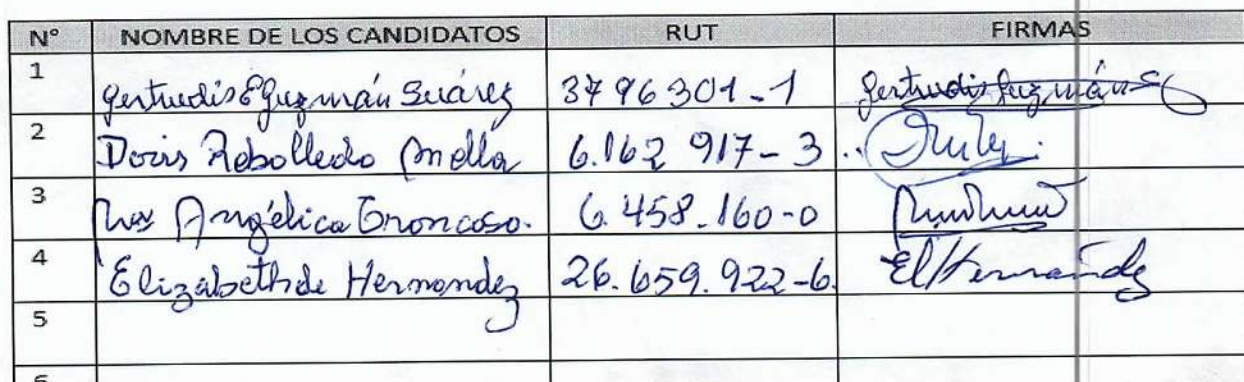 N° NOMBRE DE LOS CANDIDATOS RUT FIRMAS
1 Gertrudis E Guzmán Suárez 3796301-1 Gertrudis Guzmán S
2 Doris Rebolledo Mella 6.162 917-3
3 Angélica Troncoso. 6.458.160-0
4 Elizabeth de Hernandez 26.659.922-6. El Hernández
5
6